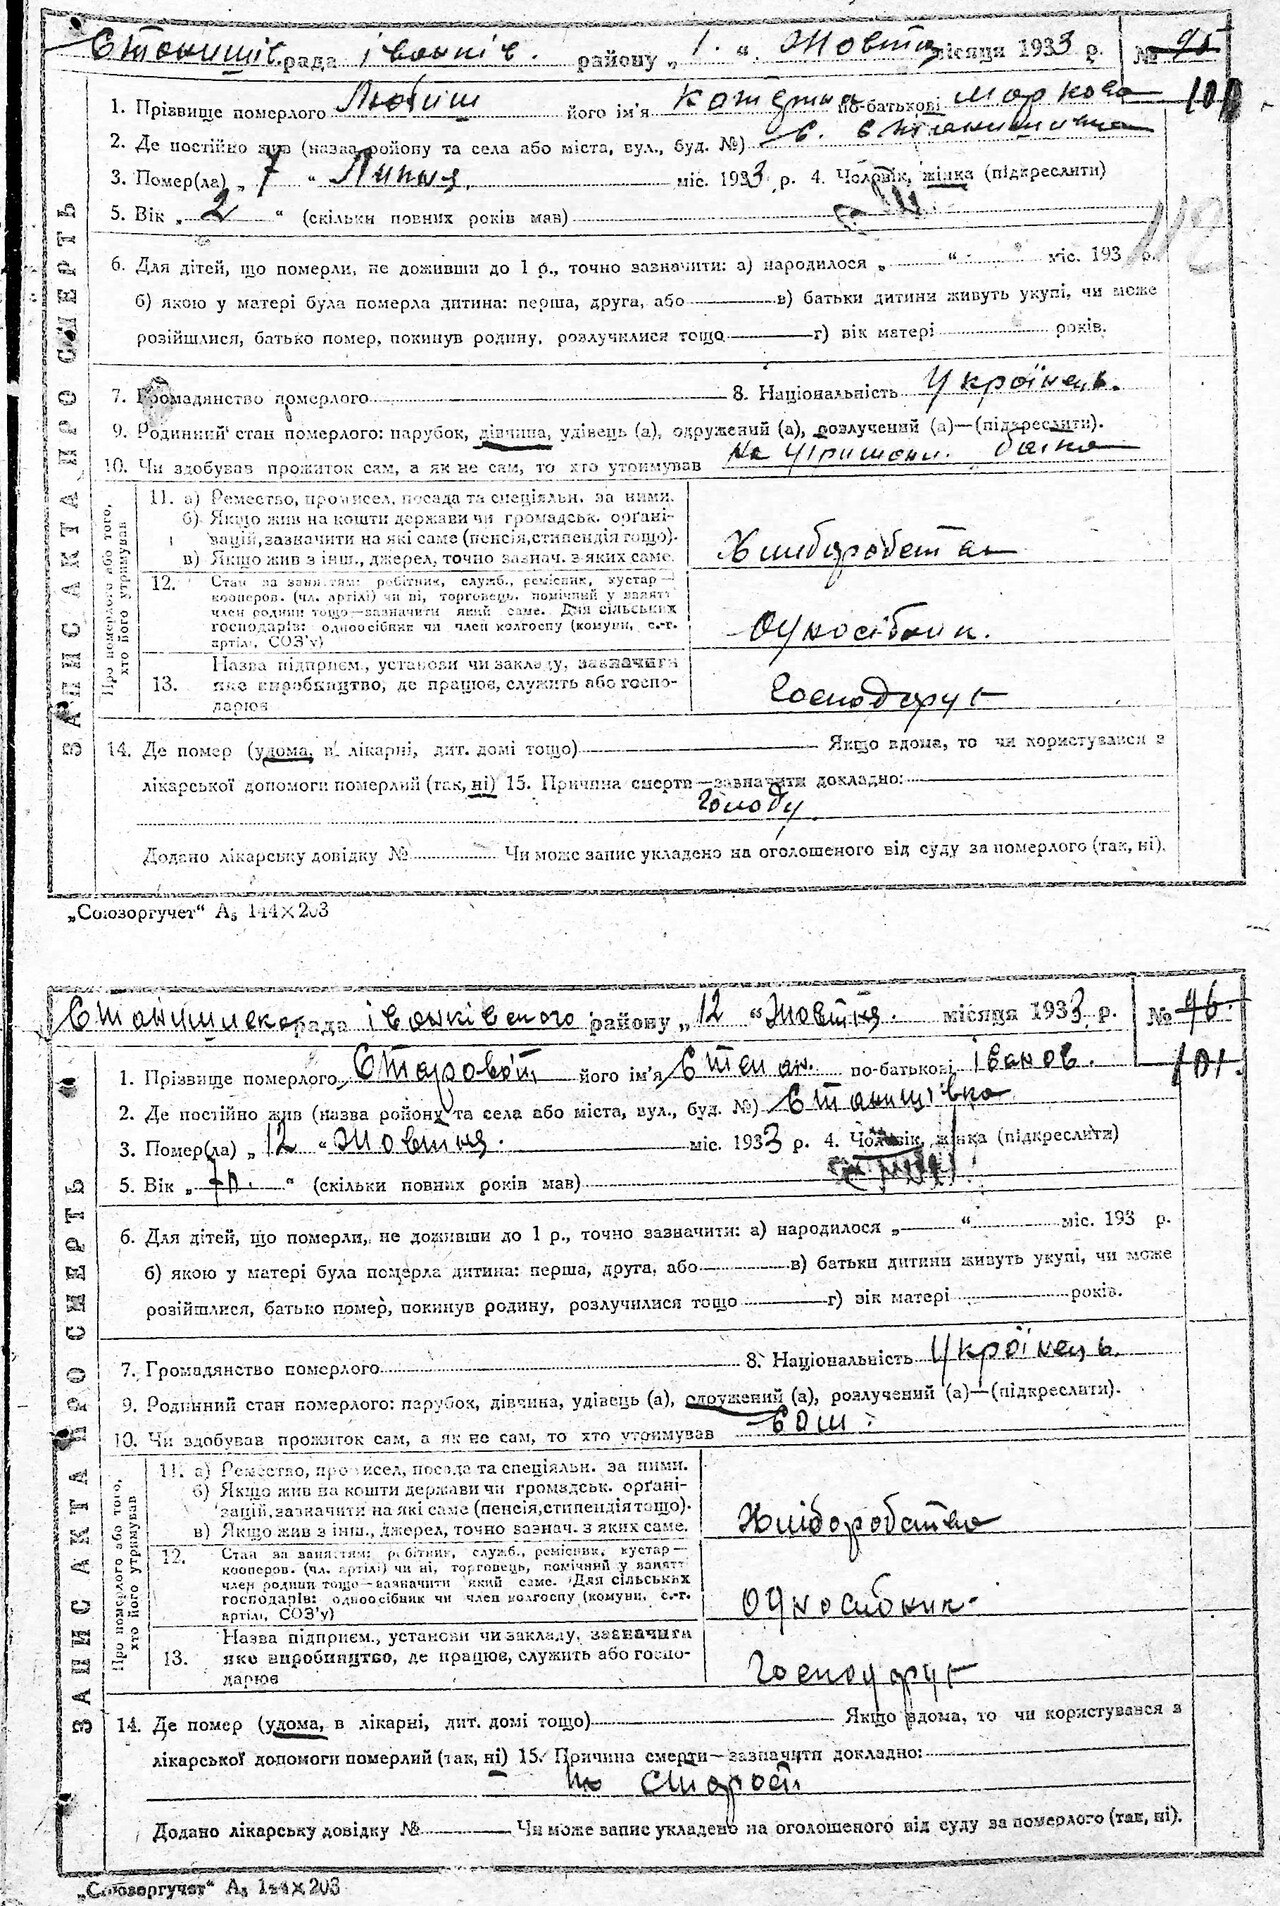 Станишів. рада іванків. району „ 1. “ Жовтня місяця 1933 р. № 95
100
1. Прізвище померлого Любиш його ім'я Катерина по-батькові Маркова
2. Де постійно жив (назва району та села або міста, вул., буд. №) с. Станишівка
3. Помер(ла) „ 7 “ Липня міс. 1933 р. 4. Чоловік, жінка (підкреслити)
5. Вік „ 2 “ (скільки повних років мав)
6. Для дітей, що померли, не доживши до 1 р., точно зазначити: а) народилося „ “ міс. 193 р.
б) якою у матері була померла дитина: перша, друга, або в) батьки дитини живуть укупі, чи може
розійшлися, батько помер, покинув родину, розлучилися тощо г) вік матері років.
7. Громадянство померлого 8. Національність Українець.
9. Родинний стан померлого: парубок, дівчина, удівець (а), одружений (а), розлучений (а)—(підкреслити).
10. Чи здобував прожиток сам, а як не сам, то хто утримував На утриман. батька
ЗАПИС АКТА ПРО СМЕРТЬ
Про померлого або того, хто його утримував
11. а) Ремество, промисел, посада та спеціяльн. за ними.
б) Якщо жив на кошти держави чи громадськ. орґані-
зацій, зазначити на які саме (пенсія, стипендія тощо).
в) Якщо жив з інш., джерел, точно зазнач. з яких саме.
Хліборобство
12. Стан за заняттям: робітник, служб., ремісник, кустар—
кооперов. (чл. артілі) чи ні, торговець, помічний у занятті
член родини тощо—зазначити який саме. Для сільських
господарів: одноосібник чи член колгоспу (комуни, с.-г.
артілі, СОЗ'у)
Односібник.
13. Назва підприєм., установи чи закладу, зазначити
яке виробництво, де працює, служить або госпо-
дарює
Господарує
14. Де помер (удома, в лікарні, дит. домі тощо) Якщо вдома, то чи користувався з
лікарської допомоги померлий (так, ні) 15. Причина смерти—зазначити докладно:
Голоду.
Додано лікарську довідку № Чи може запис укладено на оголошеного від суду за померлого (так, ні).
„Союзоргучет“ А₅ 144×203
Станишівська рада іванківського району „ 12 “ Жовтня. місяця 1933 р. № 96.
101.
1. Прізвище померлого Старовойт його ім'я Степан. по-батькові іванов.
2. Де постійно жив (назва району та села або міста, вул., буд. №) Станишівка
3. Помер(ла) „ 12 “ Жовтня. міс. 1933 р. 4. Чоловік, жінка (підкреслити)
5. Вік „ 70. “ (скільки повних років мав)
6. Для дітей, що померли, не доживши до 1 р., точно зазначити: а) народилося „ “ міс. 193 р.
б) якою у матері була померла дитина: перша, друга, або в) батьки дитини живуть укупі, чи може
розійшлися, батько помер, покинув родину, розлучилися тощо г) вік матері років.
7. Громадянство померлого 8. Національність Українець.
9. Родинний стан померлого: парубок, дівчина, удівець (а), одружений (а), розлучений (а)—(підкреслити).
10. Чи здобував прожиток сам, а як не сам, то хто утримував сам.
ЗАПИС АКТА ПРО СМЕРТЬ
Про померлого або того, хто його утримував
11. а) Ремество, промисел, посада та спеціяльн. за ними.
б) Якщо жив на кошти держави чи громадськ. орґані-
зацій, зазначити на які саме (пенсія, стипендія тощо).
в) Якщо жив з інш., джерел, точно зазнач. з яких саме.
Хліборобство
12. Стан за заняттям: робітник, служб., ремісник, кустар—
кооперов. (чл. артілі) чи ні, торговець, помічний у занятті
член родини тощо—зазначити який саме. Для сільських
господарів: одноосібник чи член колгоспу (комуни, с.-г.
артілі, СОЗ'у)
Односібник.
13. Назва підприєм., установи чи закладу, зазначити
яке виробництво, де працює, служить або госпо-
дарює
Господарує
14. Де помер (удома, в лікарні, дит. домі тощо) Якщо вдома, то чи користувався з
лікарської допомоги померлий (так, ні) 15. Причина смерти—зазначити докладно:
По старості
Додано лікарську довідку № Чи може запис укладено на оголошеного від суду за померлого (так, ні).
„Союзоргучет“ А₅ 144×203